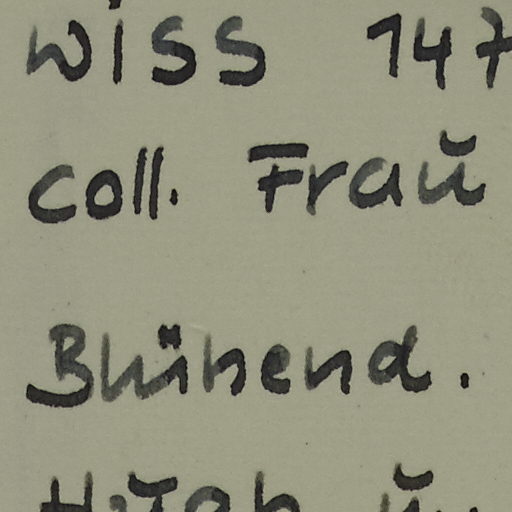 wiss 147
coll. Frau
Blühend.